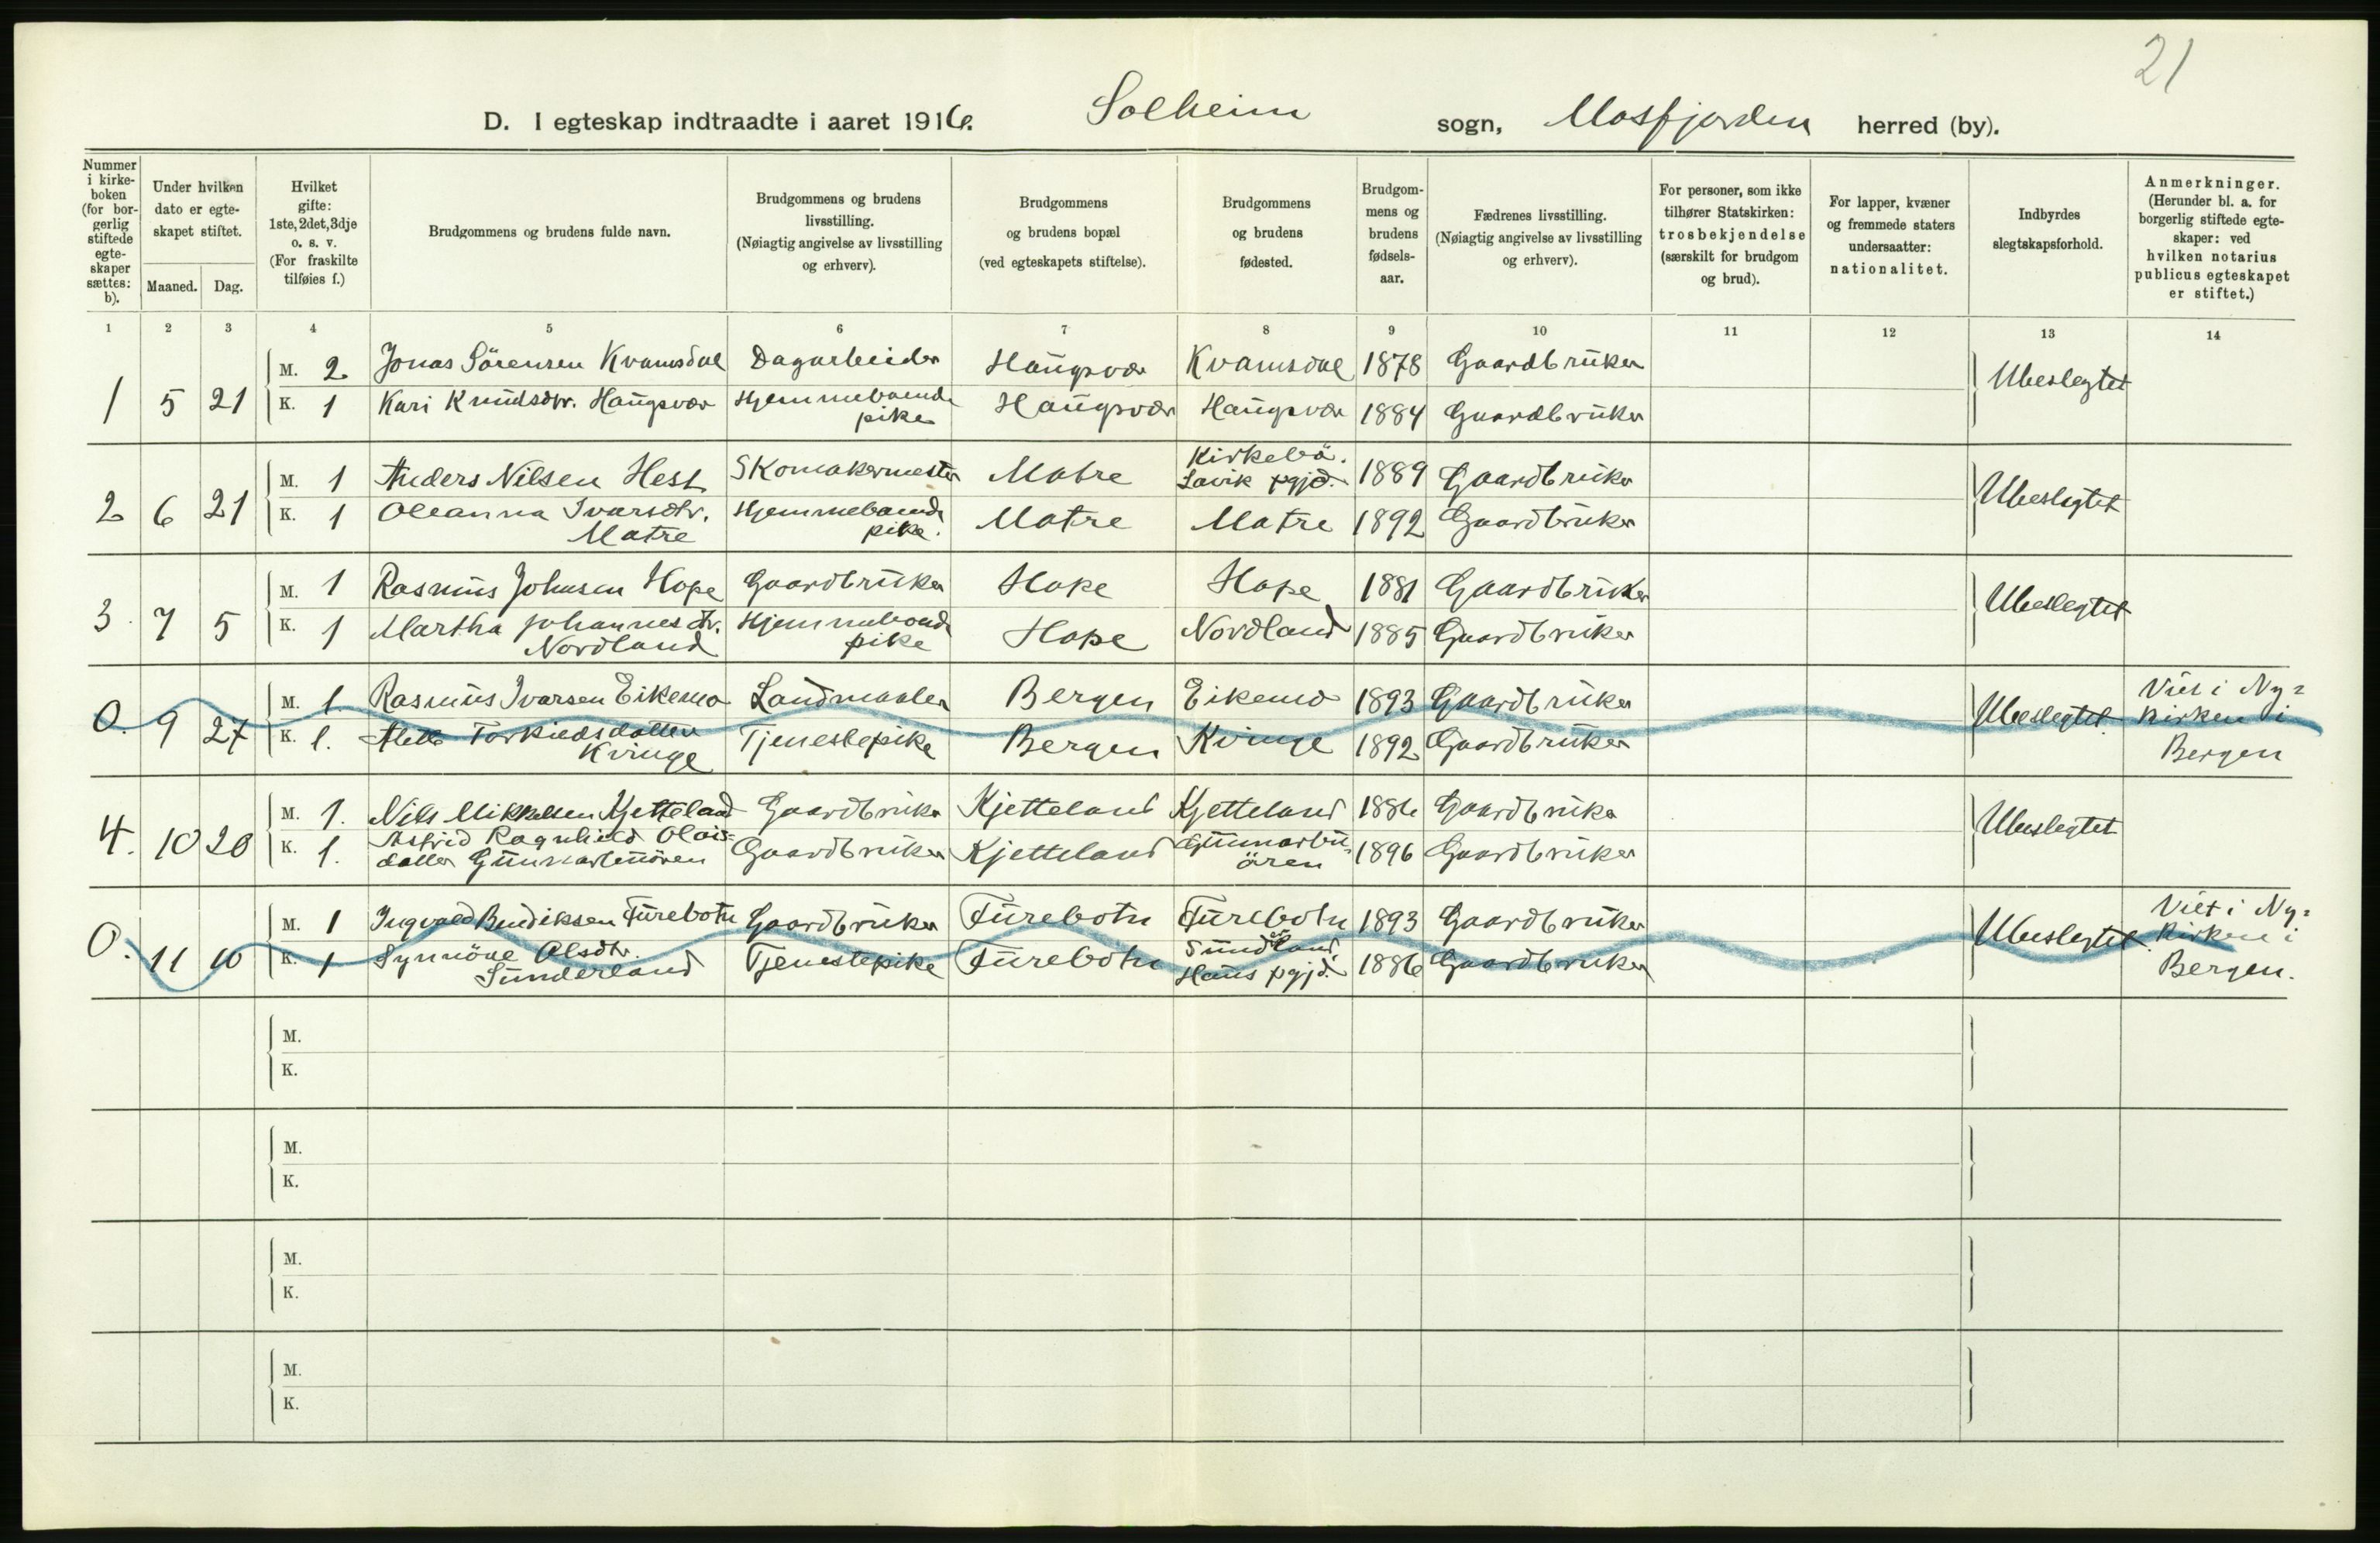 21
D. I egteskap indtraadte i aaret 1916. Solheim sogn, Masfjorden herred (by).
Nummer i kirke- boken (for bor- gerlig stiftede egte- skaper sættes: b).
Under hvilken dato er egte- skapet stiftet.
Maaned. Dag.
Hvilket gifte: 1ste, 2det, 3dje o. s. v. (For fraskilte tilføies f.)
Brudgommens og brudens fulde navn.
Brudgommens og brudens livsstilling. (Nøiagtig angivelse av livsstilling og erhverv).
Brudgommens og brudens bopæl (ved egteskapets stiftelse).
Brudgommens og brudens fødested.
Brudgom- mens og brudens fødsels- aar.
Fædrenes livsstilling. (Nøiagtig angivelse av livsstilling og erhverv).
For personer, som ikke tilhører Statskirken: trosbekjendelse (særskilt for brudgom og brud).
For lapper, kvæner og fremmede staters undersaatter: nationalitet.
Indbyrdes slegtskapsforhold.
Anmerkninger. (Herunder bl. a. for borgerlig stiftede egte- skaper: ved hvilken notarius publicus egteskapet er stiftet.)
1 2 3 4 5 6 7 8 9 10 11 12 13 14
1 5 21
M. 2 Jonas Sörensen Kvamsdal Dagarbeider Haugsvær Kvamsdal 1878 Gaardbruker Ubeslegtet
K. 1 Kari Knudsdtr. Haugsvær Hjemmeboende pike Haugsvær Haugsvær 1884 Gaardbruker
2 6 21
M. 1 Anders Nilsen Hest Skomakermester Matre Kirkebö. Lavik pgjd. 1889 Gaardbruker Ubeslegtet
K. 1 Oleanna Ivarsdtr. Matre Hjemmeboende pike. Matre Matre 1892 Gaardbruker
3. 7 5
M. 1 Rasmus Johnsen Hope Gaardbruker Hope Hope 1881 Gaardbruker Ubeslegtet
K. 1 Martha Johannesdtr. Nordland Hjemmeboende pike Hope Nordland 1885 Gaardbruker
0. 9 27
M. 1. Rasmus Ivarsen Eikemo Landmaaler Bergen Eikemo 1893 Gaardbruker Ubeslegtet. Viet i Ny= kirken i Bergen
K. 1. Torkiedsdatter Kvinge Tjenestepike Bergen Kvinge 1892 Gaardbruker
4. 10 20
M. 1. Nils Mikkelsen Kjetteland Gaardbruker Kjetteland Kjetteland 1886 Gaardbruker Ubeslegtet
K. 1. Astrid Ragnhild Olais= datter Gaardbruker Kjetteland 1896 Gaardbruker
0. 11 10
M. 1 Ingvald Bendiksen Furebotn Gaardbruker Furebotn Furebotn 1893 Gaardbruker Ubeslegtet. Viet i Ny= kirken i Bergen.
K. 1 Synnöve Olsdtr. Sunderland Tjenestepike Furebotn Sunderland, Haus pgjd. 1886 Gaardbruker
M.
K.
M.
K.
M.
K.
M.
K.